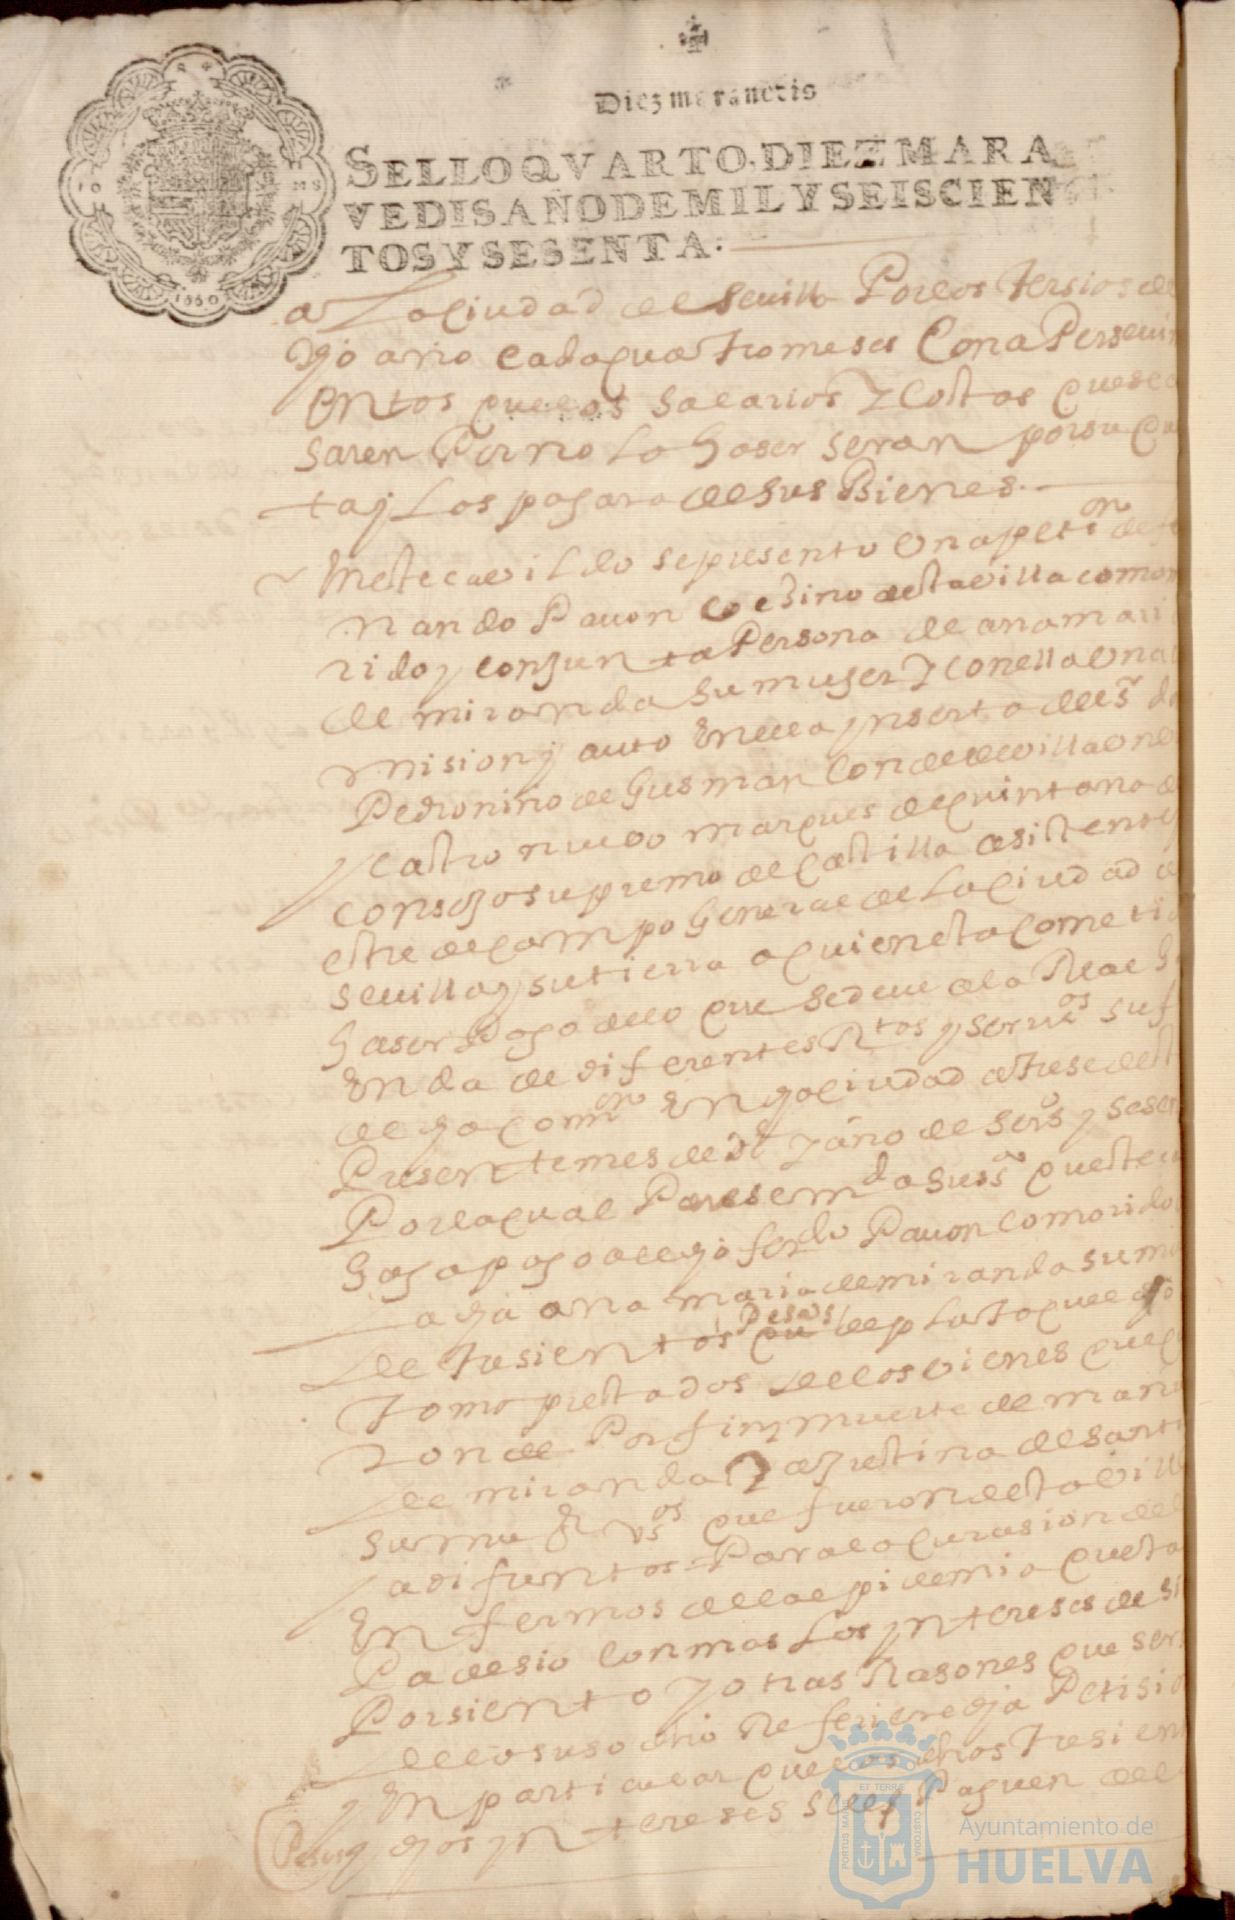 Diez maravedis
SELLO QVARTO, DIEZ MARA
VEDIS AÑO DE MIL Y SEISCIEN
TOS Y SESENTA:
1660
a La ciudad de Sevilla Por los tersios de
dho año cada quatro meses Con aperseuim
entos que los salarios y costas que se ca
saren Por no lo haser seran por su quen
ta y Los pagara de sus Bienes.
En este cavildo se presento una peti on de fer
nando Pavon vezino desta villa como ma
rido y conjunta Persona de ana maria
de miranda su muger y con ella una co
mision y auto En ella ynserto del sr don
Pedro niño de Gusman Conde de villaun
y castronuevo marques de quintana del
consejo supremo de Castilla asistente
estre de Campo General de La Ciudad de
sevilla y su tierra a quien esta Cometid
haser Pago de lo que se deve a la Real ha
Enda de diferentes Rtos y serviOs su f
de dha Comi on En dha ciudad a trese deste
Presente mes de y año de seisS y sesen
Por la qual Parese mda su sS que este ca
haga pago a el dho ferdo Pavon como marido
La dha ana maria de miranda su mu
de tresientos Pesos de plata que
Tomo prestados de los vienes que
Por fin y muerte de
de miranda y agustina de sant
su muger vSos que fueron desta vill
ya difuntos Para la curasion de
Enfermos de la epidemia que esta
Padesio con mas Los yntereses de
Por siento y otras Rasones que ser
de lo susodicho Refiere dha Petisi
y En particular que los dhos tresien
Pesos y dhos yntereses se les Paguen de
PORTUS MARIS ET TERRE CUSTODIA
Ayuntamiento de
HUELVA